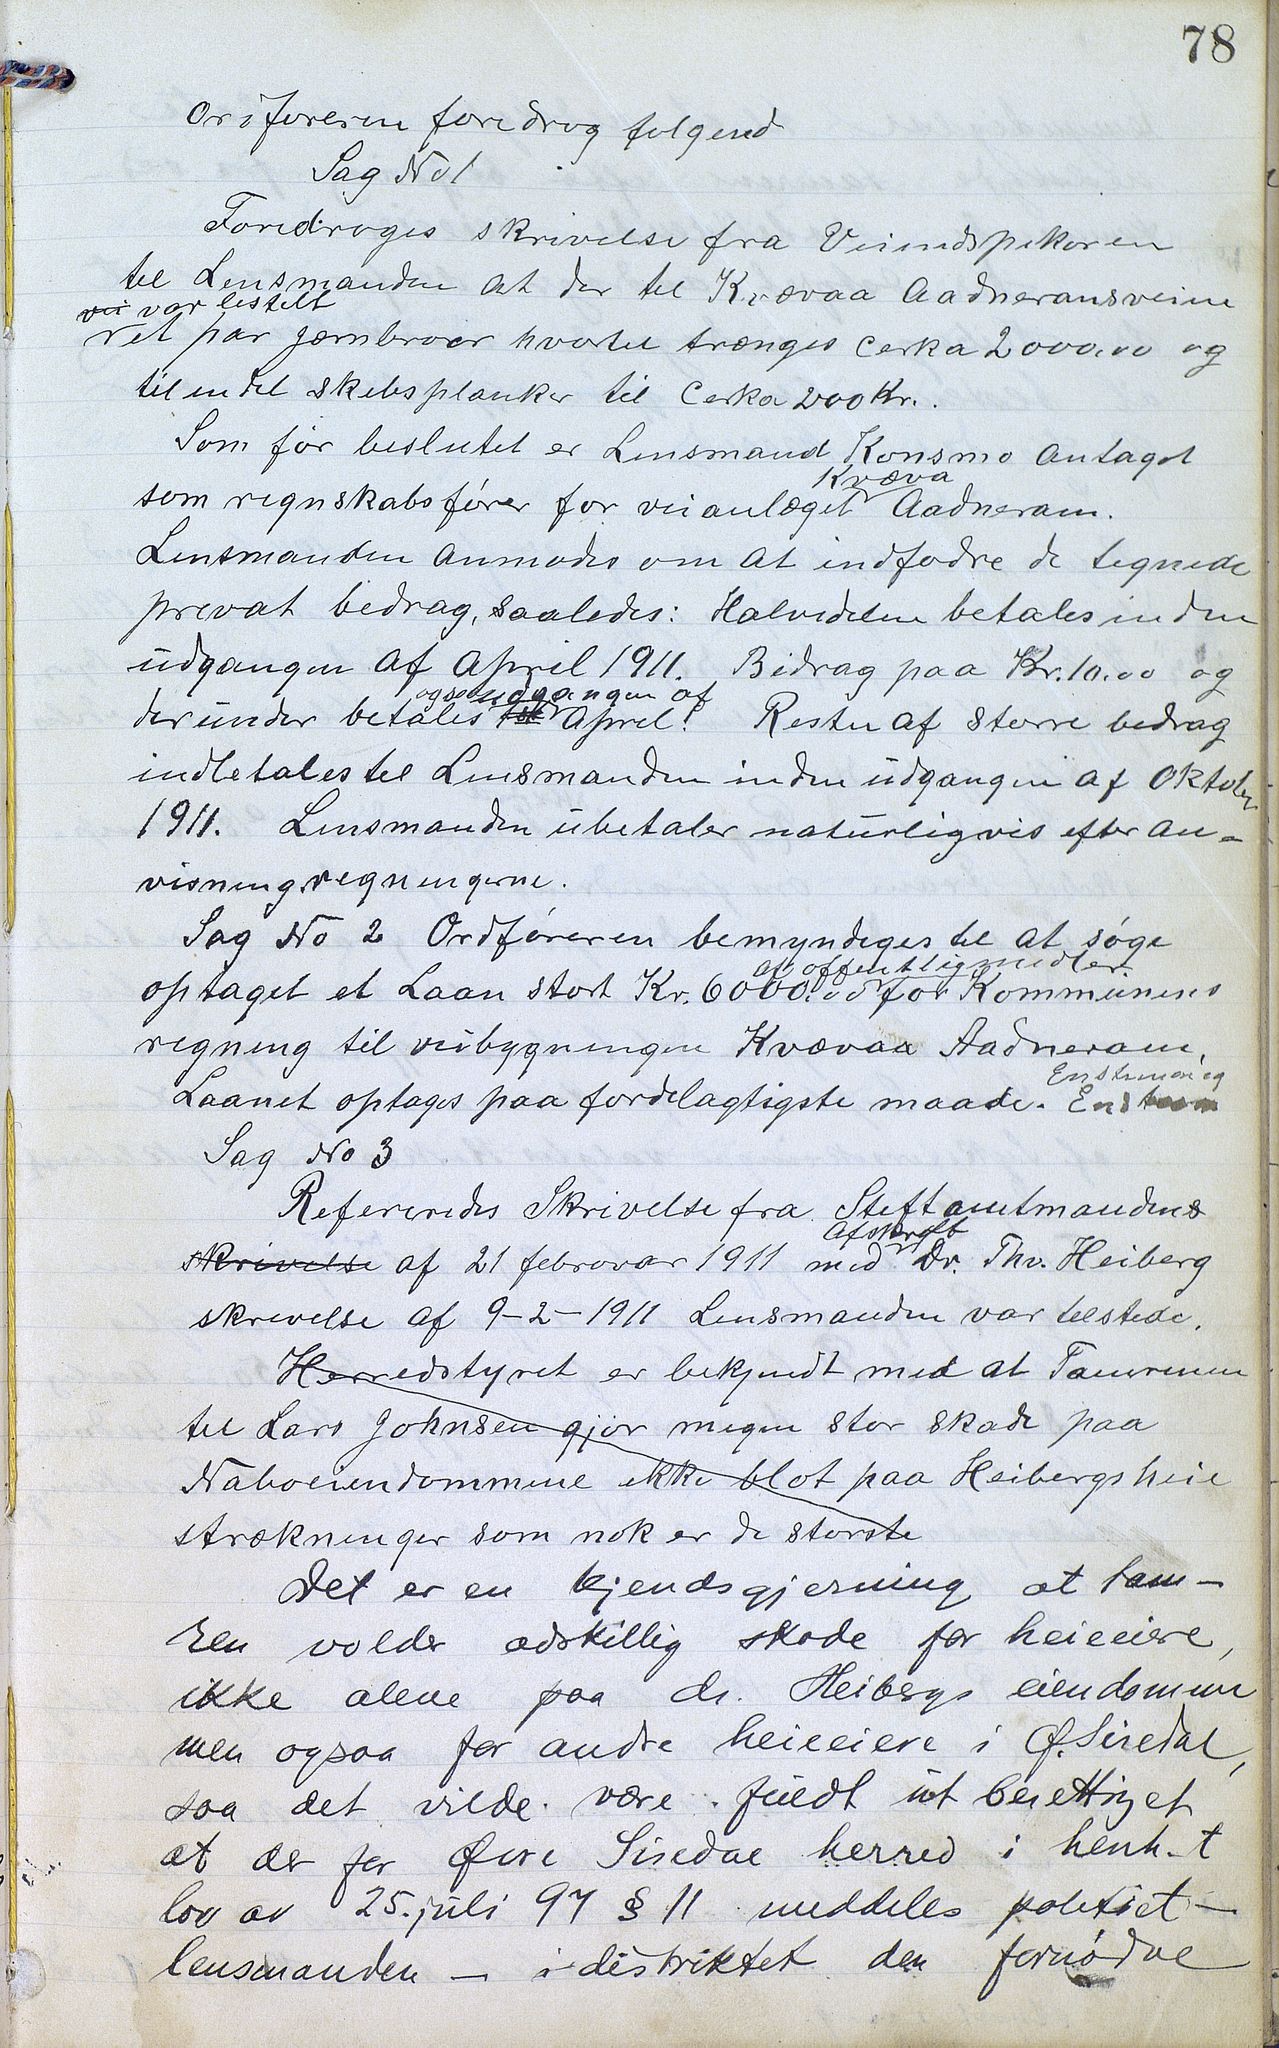 78
Ordføreren foredrog følgend
Sag No 1
Foredroges skrivelse fra Veiindspekøren
til Lensmanden at der til Kvævaa Aadneramsveien
vei var bestelt
et par jernbroer hvortil trænges cerka 2000.00 og
til endel skibsplanker til cerka 200 Kr.
Som før beslutet er Lensmand Konsmo antaget
Kvæva
som regnskabsfører for veianlæget Aadneram.
Lensmanden anmodes om at indfodre de tegnede
prevat bedrag, saaledes: Halvedelen betales inden
udgangen af April 1911. Bidrag paa Kr. 10.00 og
ogsaa udgangen af
derunder betales til April! Resten af større bedrag
indbetales til Lensmanden inden udgangen af Oktober
1911. Lensmanden ubetaler naturligvis efter an-
visning regningerne.
Sag No 2 Ordføreren bemyndiges til at søge
af offentlig medler.
optaget et Laan stort Kr. 6000.00 for Kommunens
regning til veibygningen Kvævaa Aadneram.
Enstemmig
Laanet optages paa fordelagtigste maade. End
Sag No 3
Refereredes Skrivelse fra Stiftamtmandens
Afskreft
skrivelse af 21 februar 1911 med Dr. Thv. Heiberg
skrevelse af 9-2-1911 Lensmanden var telstede.
Herredstyret er bekjendt med at Tamrenen
til Lars Johnsen gjør megen stor skade paa
Naboeiendommene ikke blot paa Heibergs heie
strækninger som nok er de største
Det er en kjendsgjerning at tam-
ren volder adskillig skade for heieeiere,
ikke alene paa dr. Heibergs eiendomme
men ogsaa for andre heieeiere i Ø. Siredal,
saa det vilde være fuldt ut berettiget
at der for Øvre Siredal herred i henh. t
lov av 25. juli 97 § 11 meddeles politiet –
lensmanden – i distriktet den fornødne